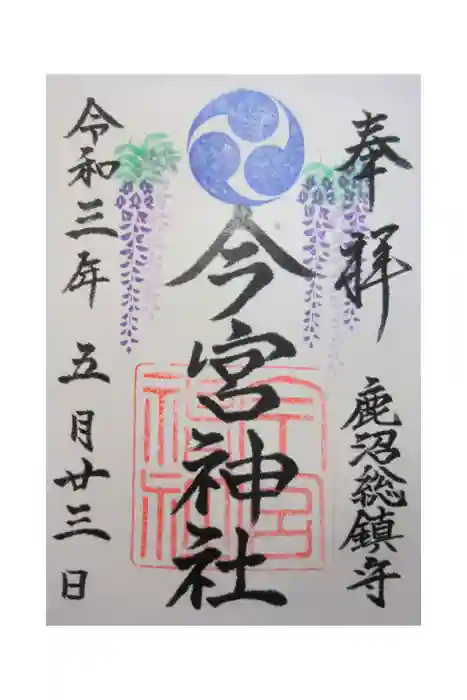 奉拝
鹿沼総鎮守
今宮神社
今宮神社
令和三年 五月廿三日